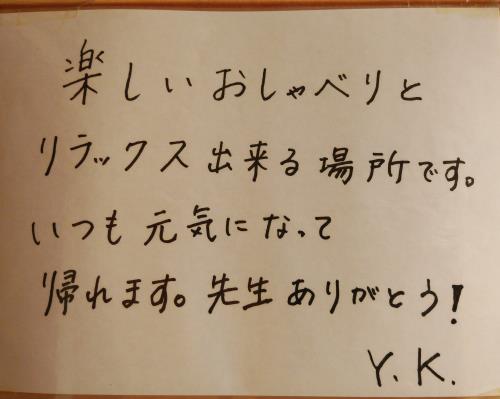 楽しいおしゃべりと
リラックス出来る場所です。
いつも元気になって
帰れます。先生ありがとう!
Y.K.